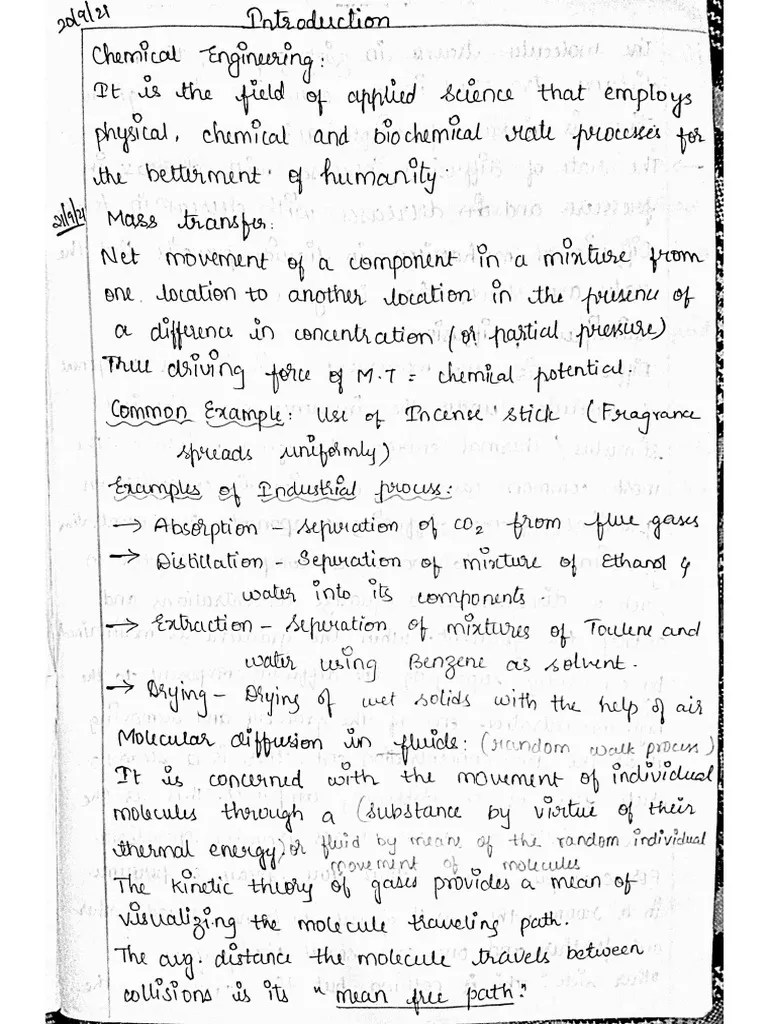 20/9/21 Introduction
Chemical Engineering:
It is the field of applied science that employs
physical, chemical and biochemical rate processes for
the betterment of humanity
21/9/21 Mass transfer:
Net movement of a component in a mixture from
one location to another location in the presence of
a difference in concentration (or partial pressure)
True driving force of M.T = chemical potential.
Common Example: Use of Incense stick (Fragrance
spreads uniformly)
Examples of Industrial process:
→ Absorption - seperation of CO2 from flue gases
→ Distillation - Seperation of mixture of Ethanol &
water into its components.
→ Extraction - seperation of mixtures of Toulene and
water using Benzene as solvent.
→ Drying - Drying of wet solids with the help of air
Molecular diffusion in fluids: (random walk process)
It is concerned with the movement of individual
molecules through a (substance by virtue of their
thermal energy) or fluid by means of the random individual
movement of molecules
The kinetic theory of gases provides a mean of
visualizing the molecule traveling path.
The avg. distance the molecule travels between
collisions is its "mean free path."